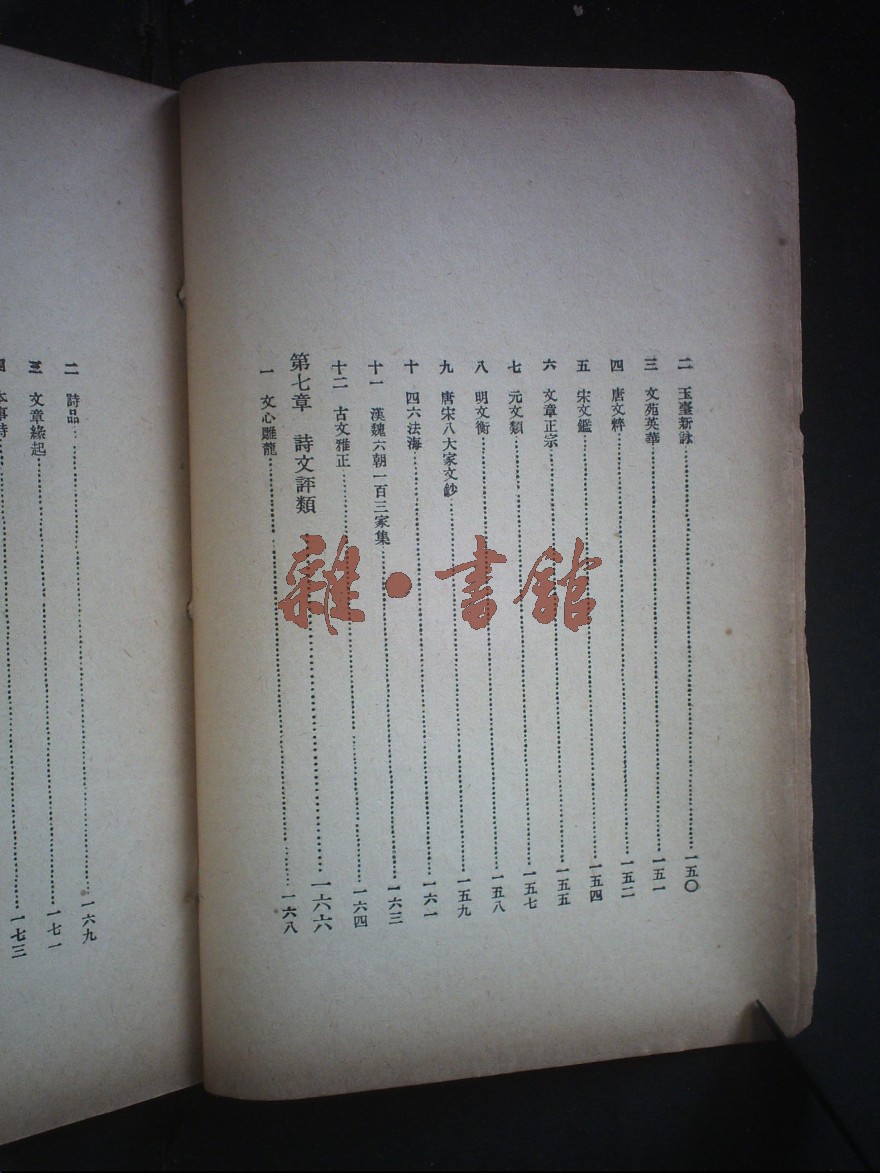 二　玉臺新詠……一五〇
三　文苑英華……一五一
四　唐文粹……一五二
五　宋文鑑……一五四
六　文章正宗……一五五
七　元文類……一五七
八　明文衡……一五八
九　唐宋八大家文鈔……一五九
十　四六法海……一六一
十一　漢魏六朝一百三家集……一六三
十二　古文雅正……一六四
第七章　詩文評類……一六六
一　文心雕龍……一六八
二　詩品……一六九
三　文章緣起……一七一
四　本事詩……一七三
雜·書館